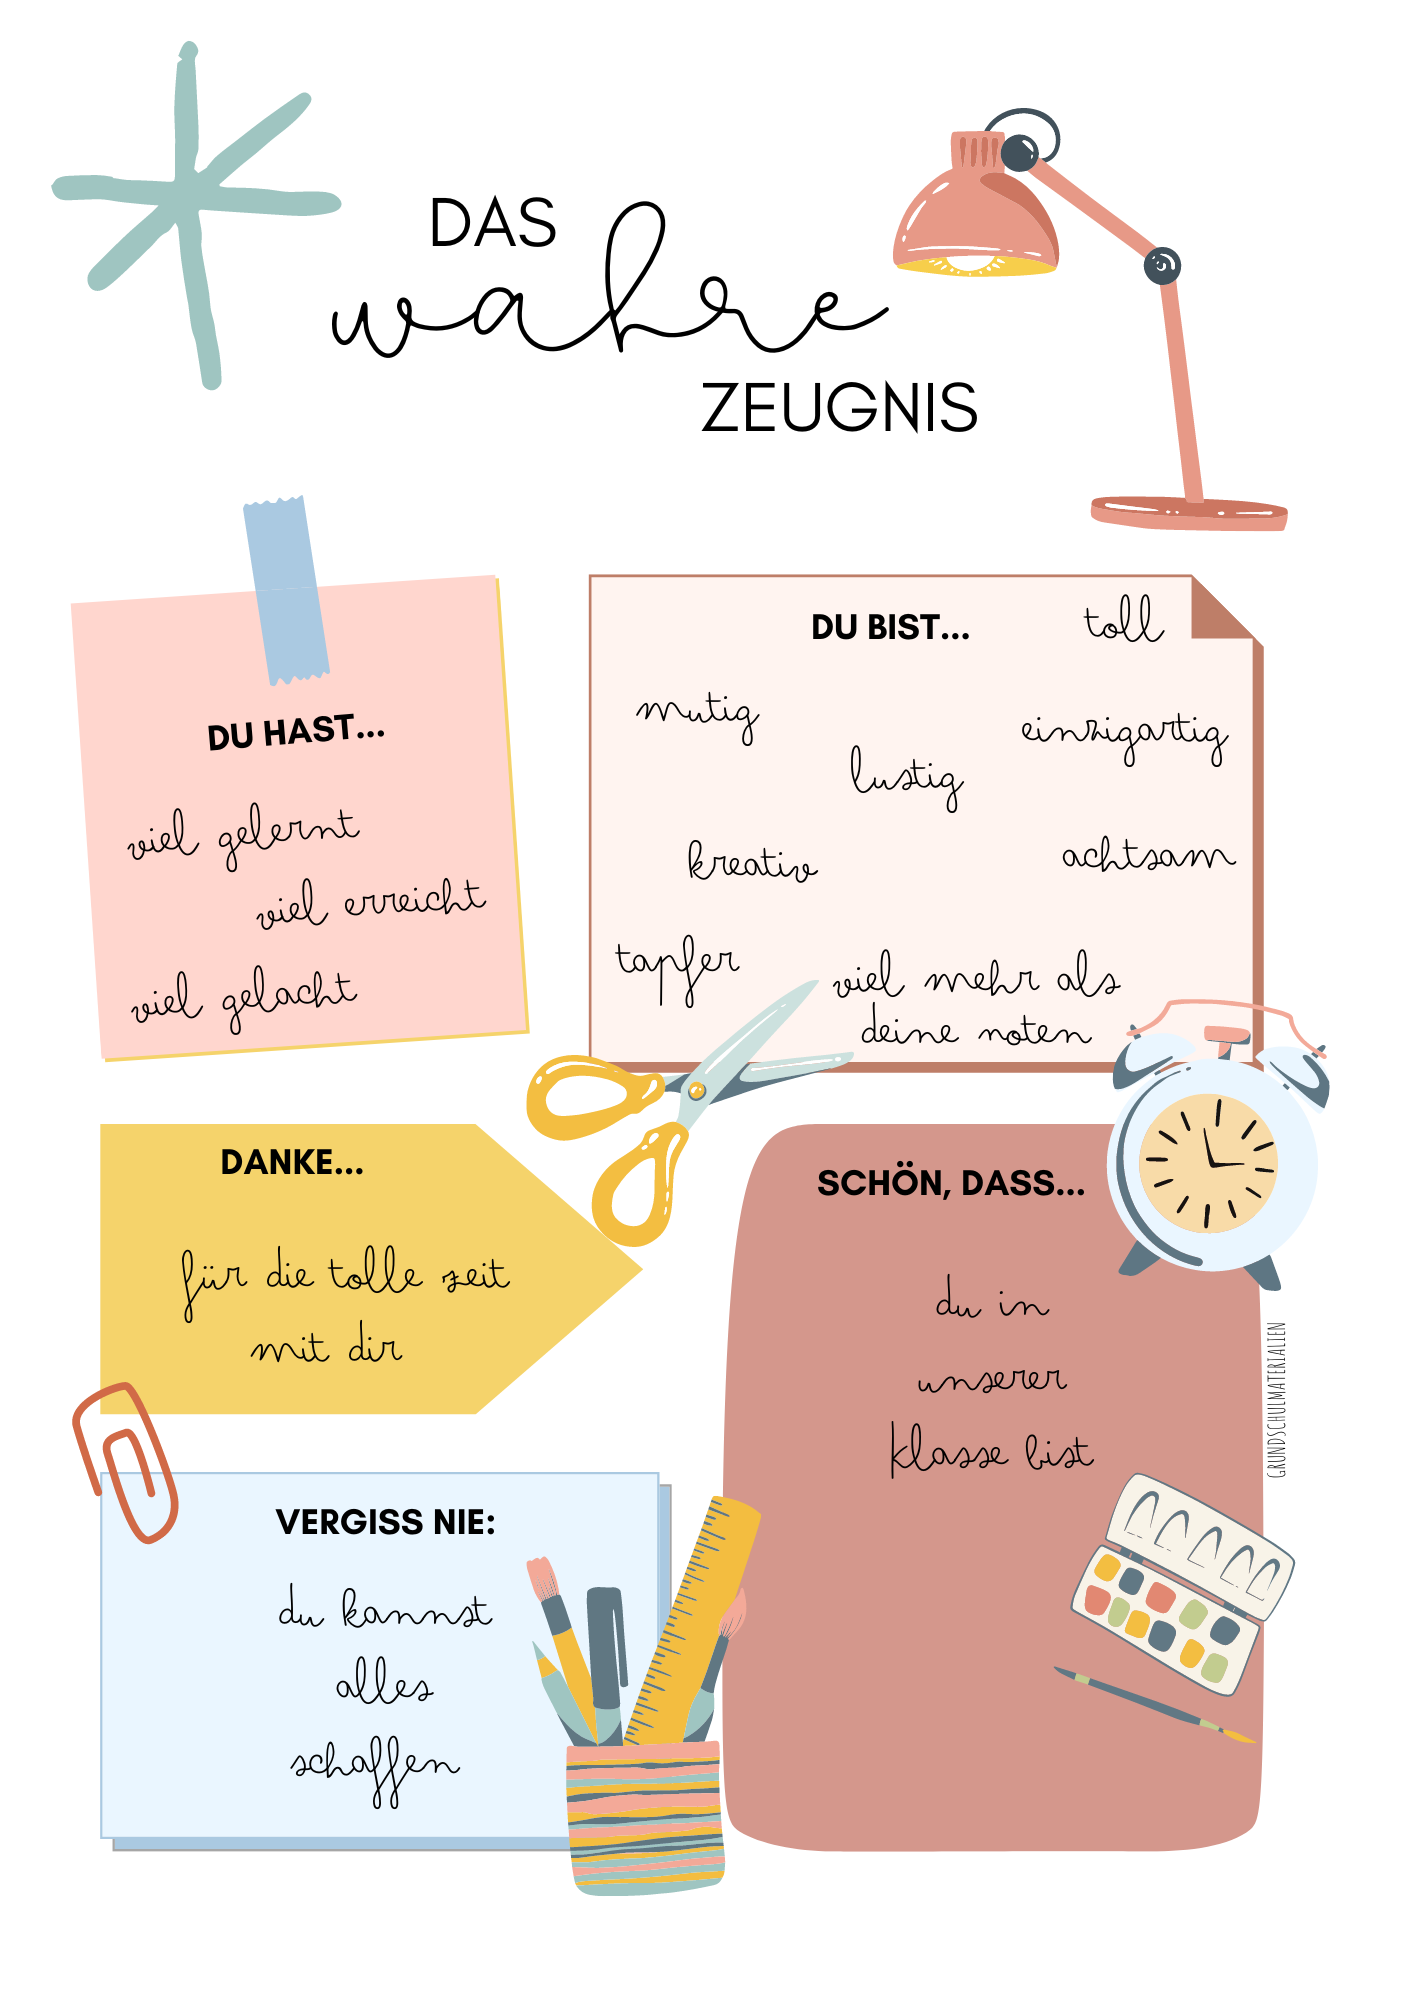 DAS
wahre
ZEUGNIS
DU HAST...
viel gelernt
viel erreicht
viel gelacht
DU BIST...
toll
mutig
einzigartig
lustig
kreativ
achtsam
tapfer
viel mehr als
deine noten
DANKE...
für die tolle zeit
mit dir
SCHÖN, DASS...
du in
unserer
klasse bist
GRUNDSCHULMATERIALIEN
VERGISS NIE:
du kannst
alles
schaffen